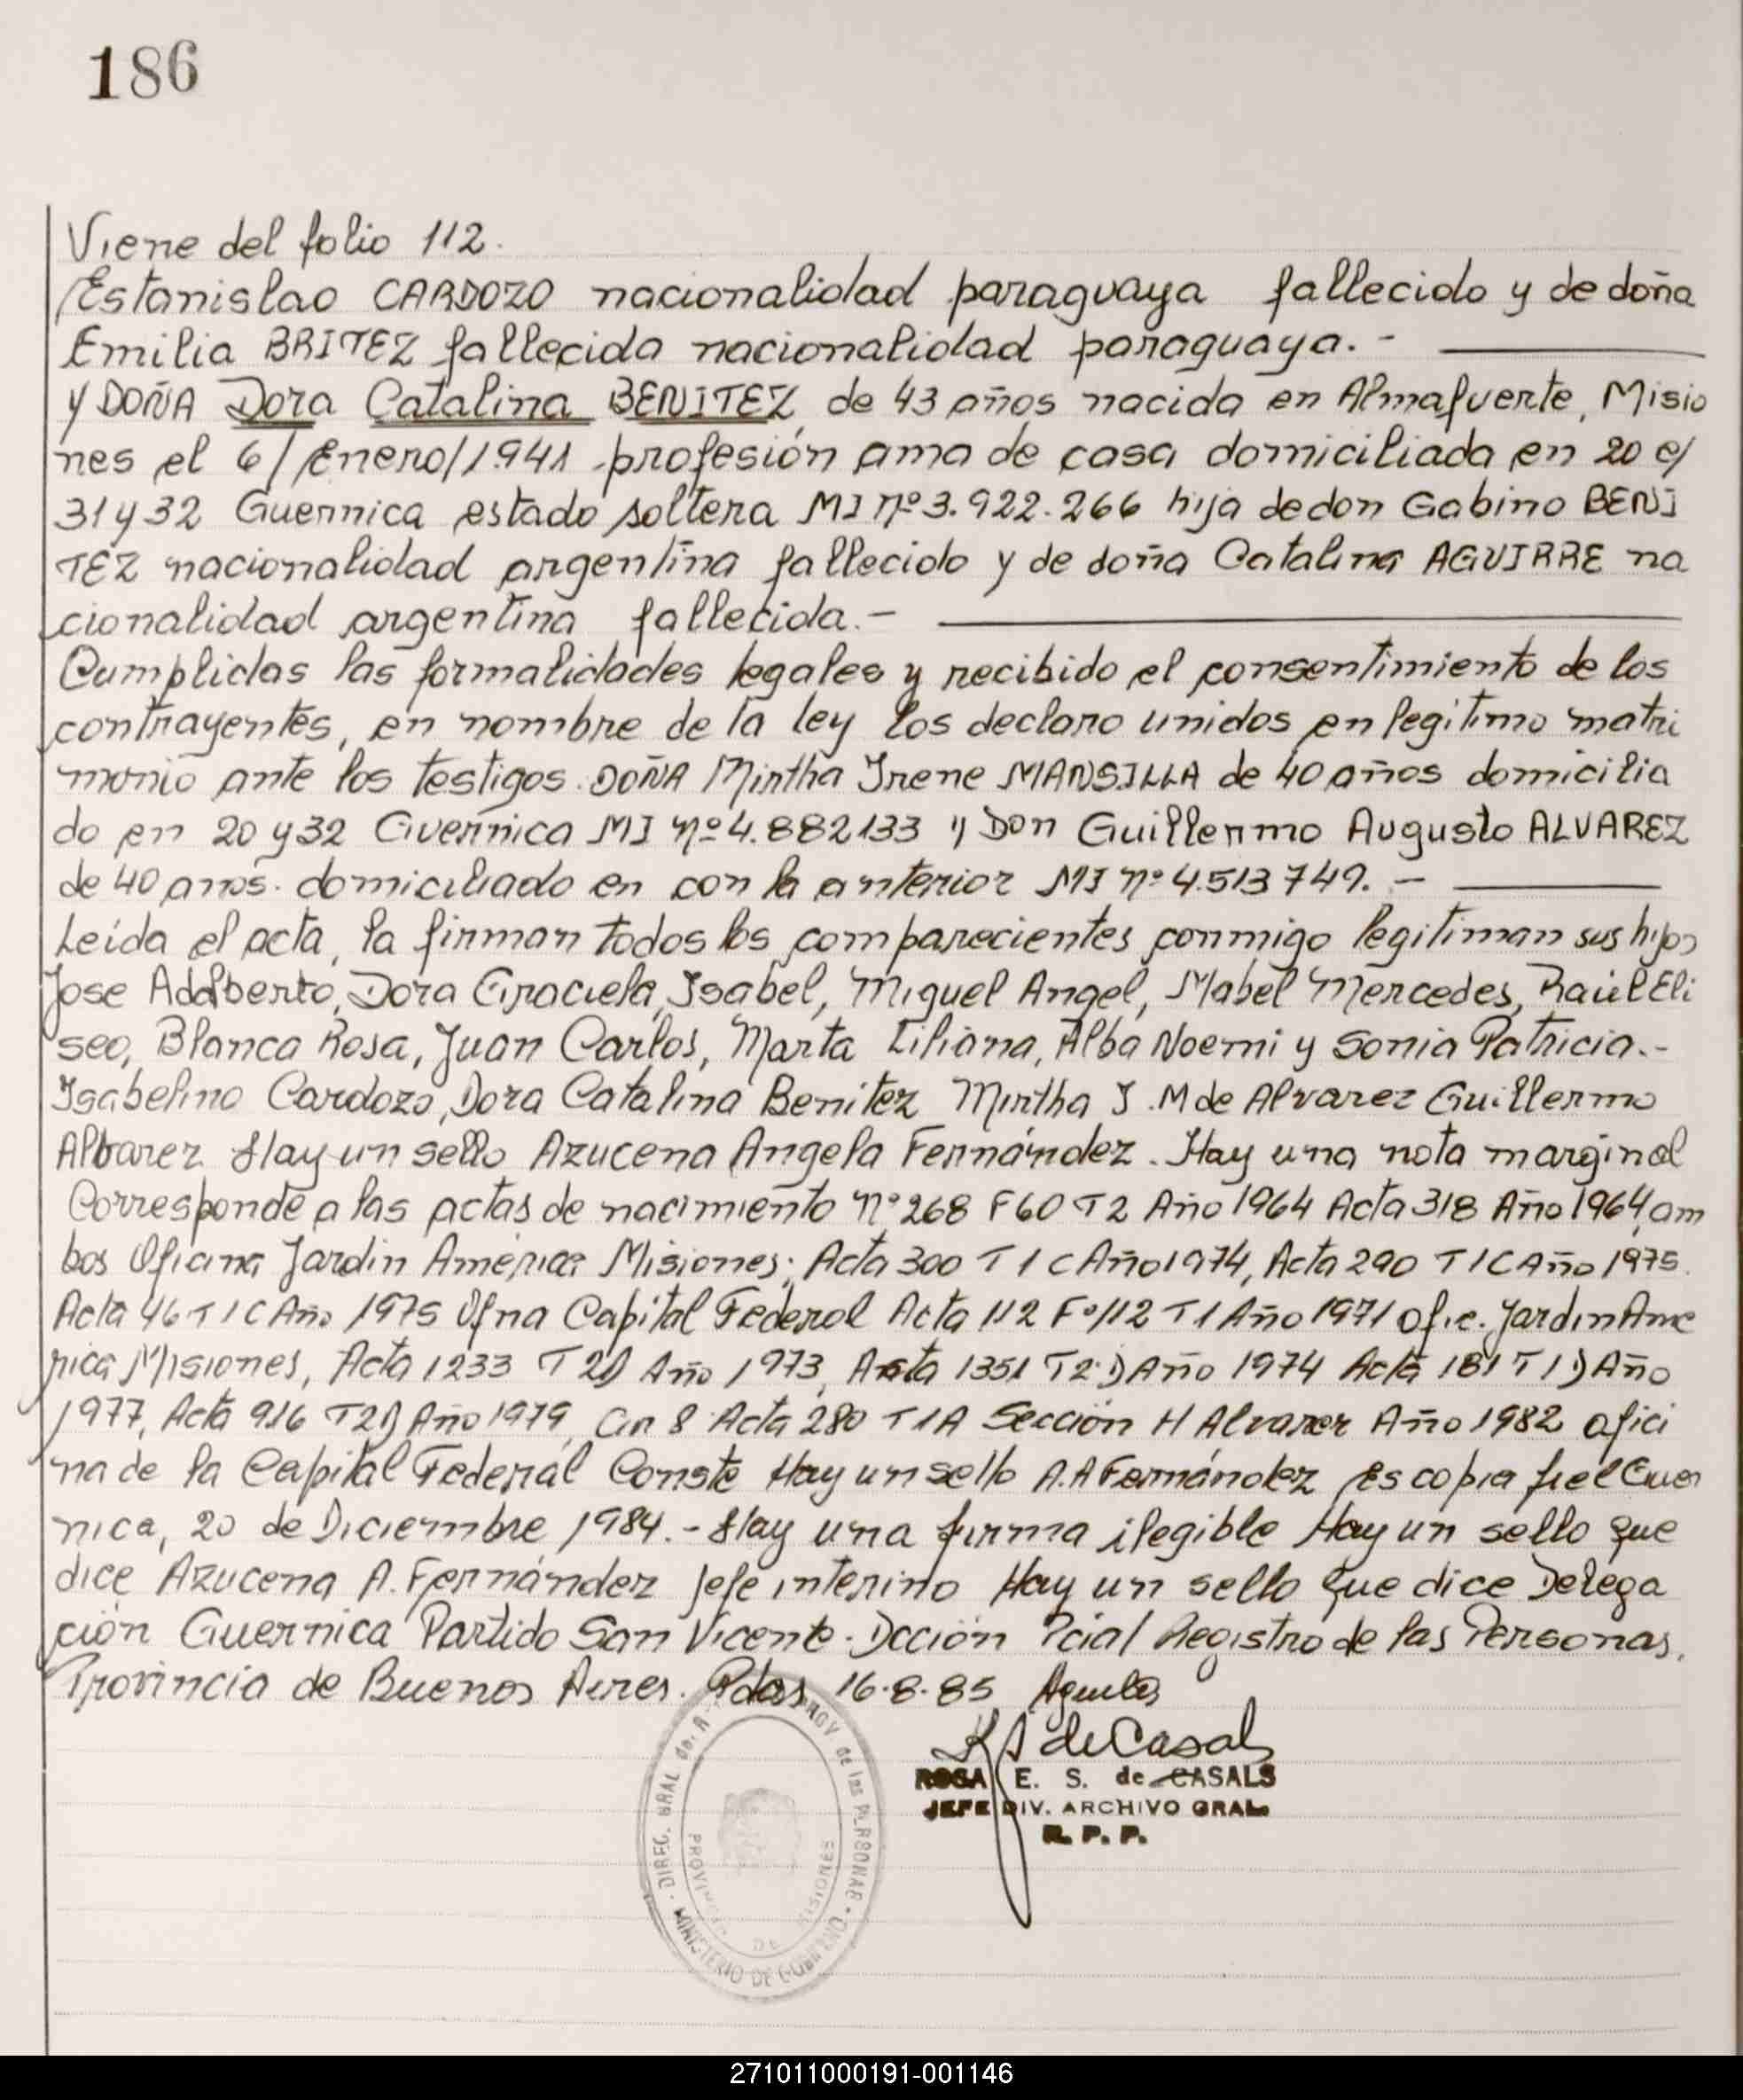 186
Viene del folio 112.
Estanislao CARDOZO nacionalidad paraguaya fallecido y de doña
Emilia BRITEZ fallecida nacionalidad paraguaya.-
y DOÑA Dora Catalina BENITEZ, de 43 años nacida en Almafuerte, Misio
nes el 6/Enero/1.941 profesión ama de casa domiciliada en 20 e/
31 y 32 Guernica estado soltera MI nº 3.922.266 hija de don Gabino BENI
TEZ nacionalidad argentina fallecido y de doña Catalina AGUIRRE na
cionalidad argentina fallecida.-
Cumplidas las formalidades legales y recibido el consentimiento de los
contrayentes, en nombre de la ley los declaro unidos en legítimo matri
monio ante los testigos. DOÑA Mirtha Irene MANSILLA de 40 años domicilia
do en 20 y 32 Guernica MI nº 4.882133 y Don Guillermo Augusto ALVAREZ
de 40 años. domiciliado en con la anterior MI nº 4.513749.-
Leída el acta, la firman todos los comparecientes conmigo legitiman sus hijos
Jose Adalberto, Dora Graciela, Isabel, Miguel Angel, Mabel Mercedes, Raúl Eli
seo, Blanca Rosa, Juan Carlos, Marta Liliana, Alba Noemi y Sonia Patricia.-
Isabelino Cardozo, Dora Catalina Benitez Mirtha I. M de Alvarez Guillermo
Albarez Hay un sello Azucena Angela Fernández. Hay una nota marginal
Corresponde a las actas de nacimiento nº 268 F 60 T 2 Año 1964 Acta 318 Año 1964, am
bos Oficina Jardin América Misiones; Acta 300 T 1 C Año 1974, Acta 290 T 1 C Año 1975.
Acta 46 T 1 C Año 1975 Ofna Capital Federal Acta 112 Fº 112 T 1 Año 1971 ofic. Jardin Ame
rica Misiones, Acta 1233 T 2D Año 1973, Acta 1351 T2D Año 1974 Acta 181 T 1D Año
1977, Acta 916 T2D Año 1979, Cir 8 Acta 280 T 1A Sección H Alvarez Año 1982 ofici
na de la Capital Federal Conste Hay un sello A.A Fernández es copia fiel Guer
nica, 20 de Diciembre 1984.- Hay una firma ilegible Hay un sello que
dice Azucena A. Fernández Jefe interino Hay un sello que dice Delega
ción Guernica Partido San Vicente. Dcción Pcial Registro de las Personas.
Provincia de Buenos Aires. Pdas 16.8.85
de Casal
ROSA E. S. de CASALS
JEFE DIV. ARCHIVO GRAL
R. P. P.
DIREC. GRAL del PROV de las PERSONAS
MINISTERIO DE GOBIERNO
PROVINCIA DE MISIONES
271011000191-001146